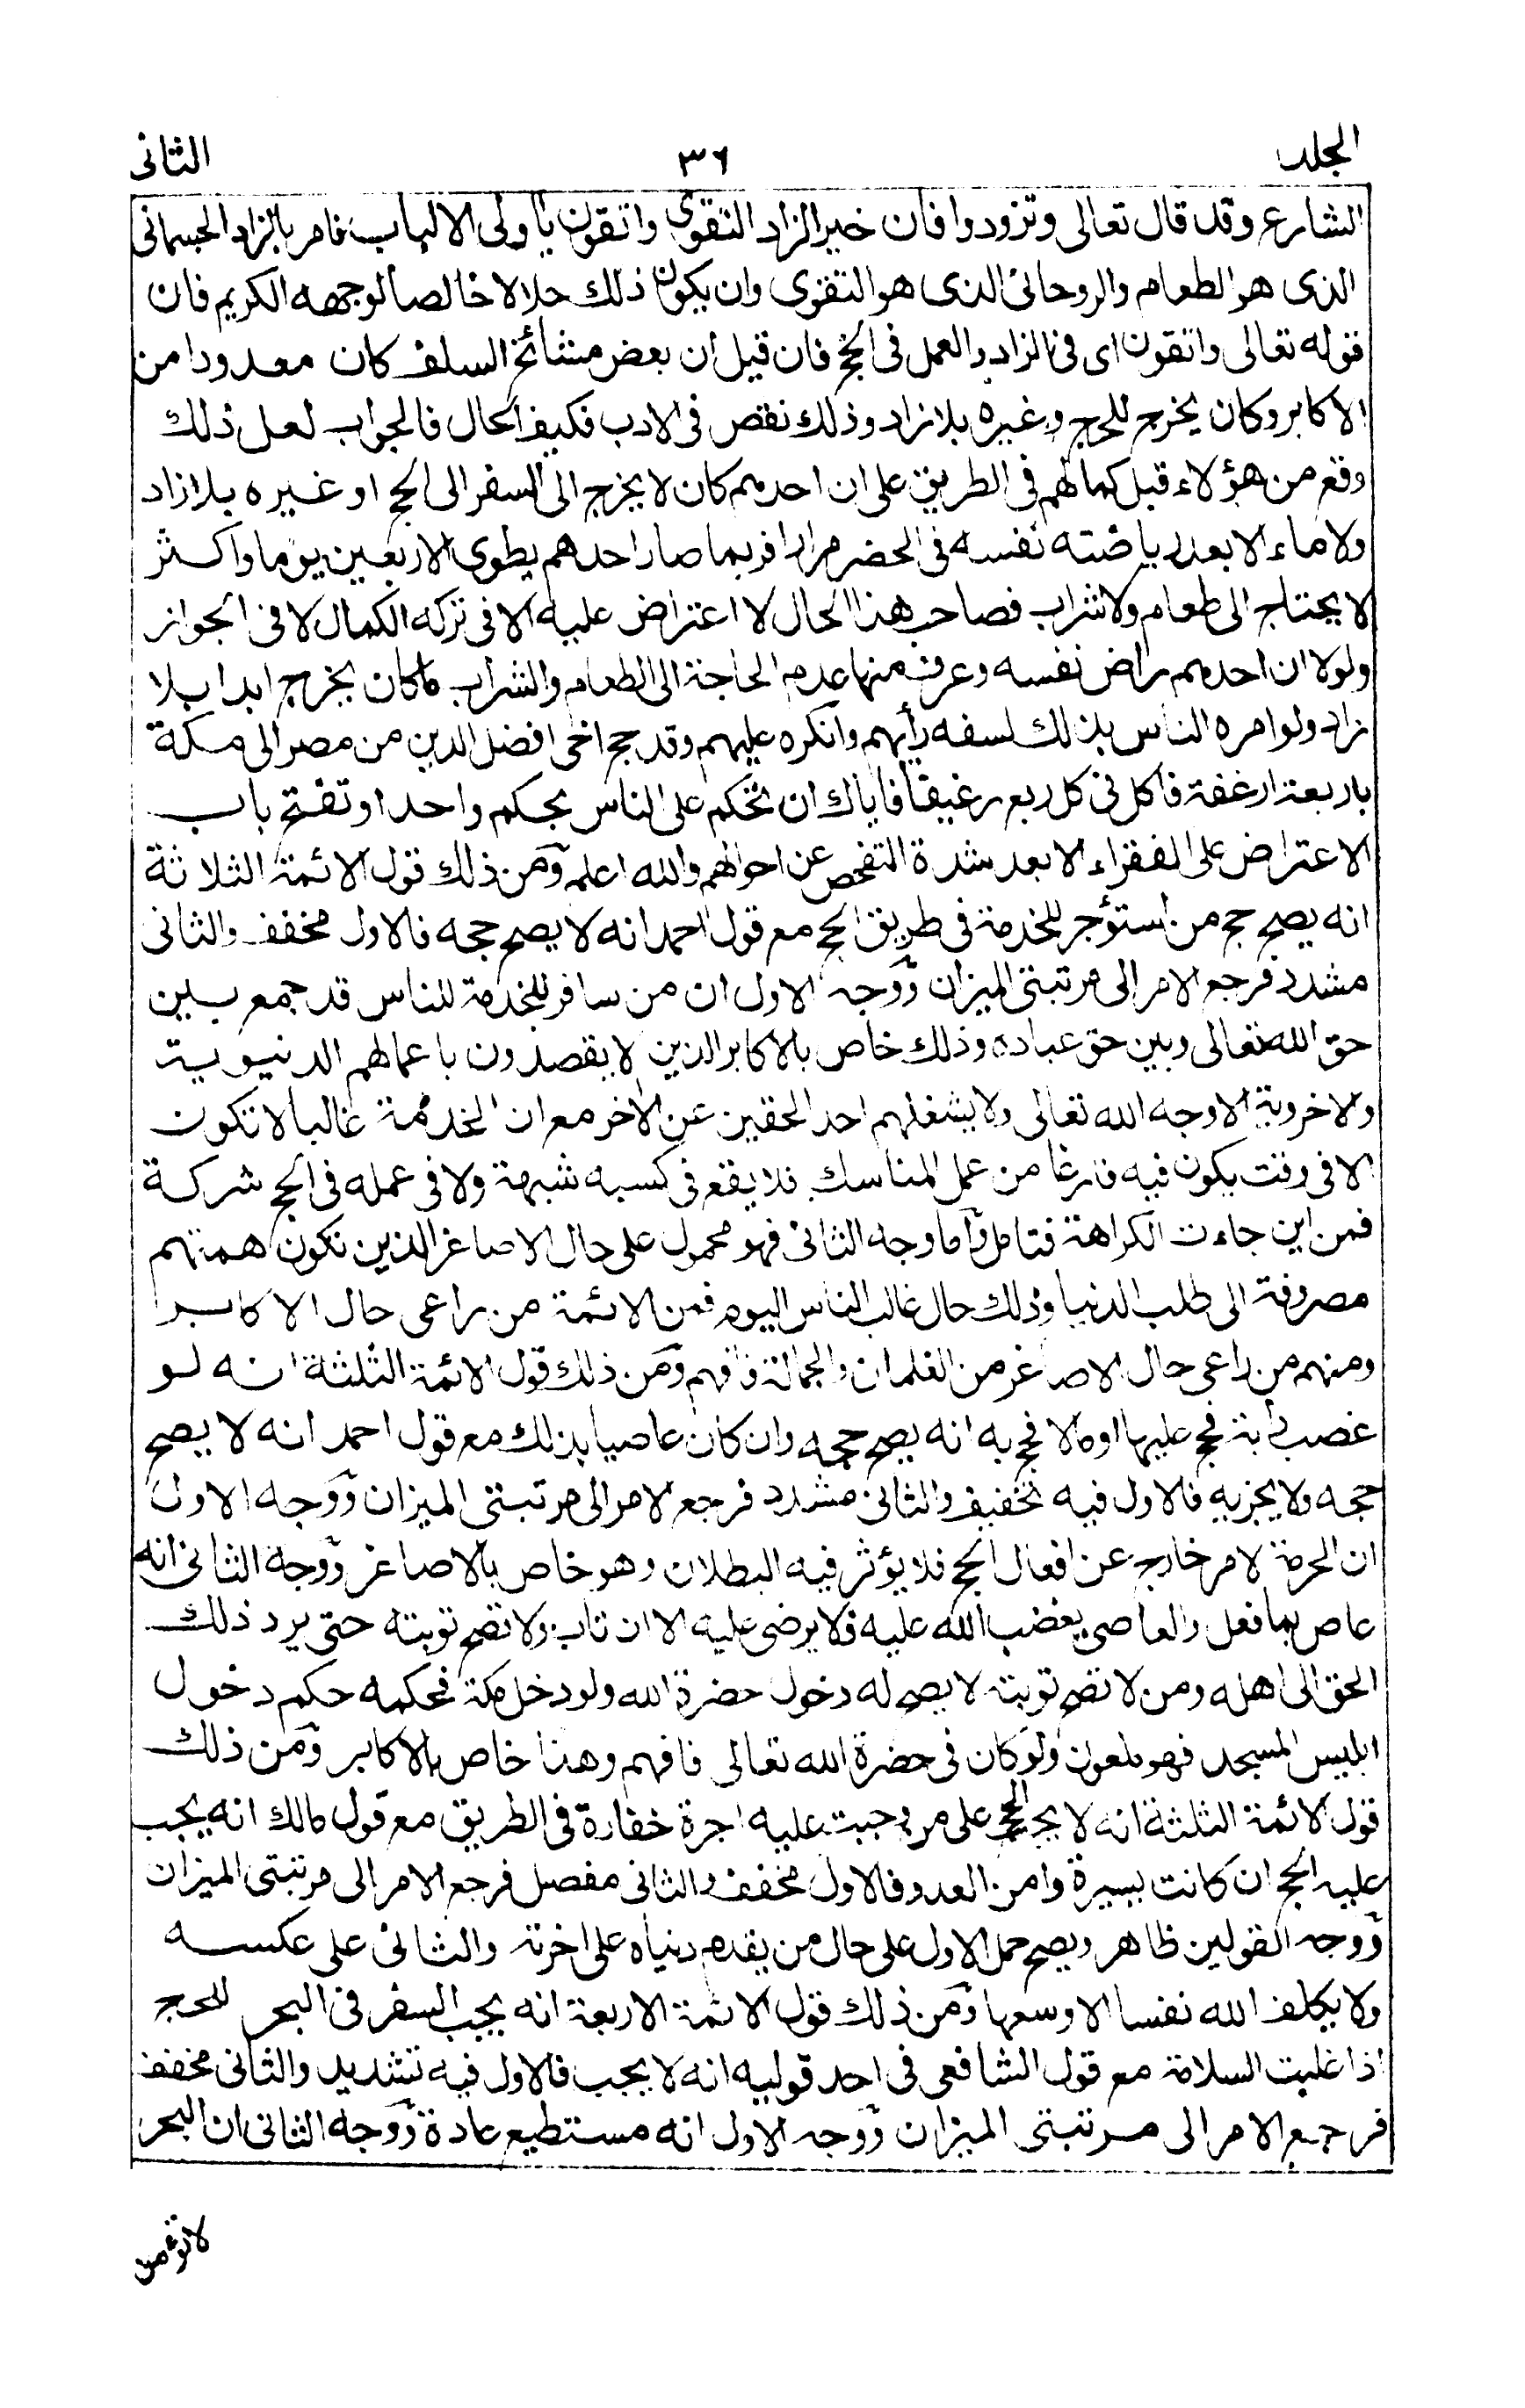 الجلد
٣٦
الثانى
الشارع وقد قال تعالى وتزودوا فان خير الزاد التقوى واتقون يا اولى الالباب فامر بالزاد الجسمانى
الذى هو الطعام والروحانى الذى هو التقوى وان يكون ذلك حلالا خالصا لوجهه الكريم فان
قوله تعالى واتقون اى فى الزاد والعمل فى الحج فان قيل ان بعض مشائخ السلف كان معدودا من
الاكابر وكان يخرج للحج وغيره بلا زاد وذلك نقص فى الادب فكيف الحال فالجواب لعل ذلك
وقع من هؤلاء قبل كمالهم فى الطريق على ان احدهم كان لا يخرج الى السفر الى الحج او غيره بلا زاد
ولا ماء الا بعد رياضته نفسه فى الحضر مرارا فربما صار احدهم يطوى الاربعين يوما واكثر
لا يحتاج الى طعام ولا شراب فصاحب هذا الحال لا اعتراض عليه الا فى تركه الكمال لا فى الجواز
ولولا ان احدهم راض نفسه وعرف منها عدم الحاجة الى الطعام والشراب ما كان يخرج ابدا بلا
زاد ولو امره الناس بذلك لسفه رأيهم وانكره عليهم وقد حج اخى افضل الدين من مصر الى مكة
باربعة ارغفة فاكل فى كل ربع رغيفا فاياك ان تحكم على الناس بحكم واحد او تفتح باب
الاعتراض على الفقراء الا بعد شدة التفحص عن احوالهم والله اعلم ومن ذلك قول الائمة الثلاثة
انه يصح حج من استؤجر للخدمة فى طريق الحج مع قول احمد انه لا يصح حجه فالاول مخفف والثانى
مشدد فرجع الامر الى مرتبتى الميزان ووجه الاول ان من سافر للخدمة للناس قد جمع بين
حق الله تعالى وبين حق عباده وذلك خاص بالاكابر الذين لا يقصدون باعمالهم الدنيوية
والاخروية الا وجه الله تعالى ولا يشغلهم احد الحقين عن الاخر مع ان الخدمة غالبا لا تكون
الا فى وقت يكون فيه فارغا من عمل المناسك فلا يقع فى كسبه شبهة ولا فى عمله فى الحج شركة
فمن اين جاءت الكراهة فتامل واما وجه الثانى فهو محمول على حال الاصاغر الذين تكون همتهم
مصروفة الى طلب الدنيا وذلك حال غالب الناس اليوم فمن الائمة من راعى حال الاكابر
ومنهم من راعى حال الاصاغر من الغلمان والجمالة فافهم ومن ذلك قول الائمة الثلثة انه لو
غصب دابة فحج عليها او مالا فحج به انه يصح حجه وان كان عاصيا بذلك مع قول احمد انه لا يصح
حجه ولا يجزيه فالاول فيه تخفيف والثانى مشدد فرجع الامر الى مرتبتى الميزان ووجه الاول
ان الحرمة لامر خارج عن افعال الحج فلا يؤثر فيه البطلان وهو خاص بالاصاغر ووجه الثانى انه
عاص بما فعل والعاصى يغضب الله عليه فلا يرضى عليه الا ان تاب ولا تصح توبته حتى يرد ذلك
الحق الى اهله ومن لا تصح توبته لا يصح له دخول حضرة الله ولو دخل مكة فحكمه حكم دخول
ابليس المسجد فهو ملعون ولو كان فى حضرة الله تعالى فافهم وهذا خاص بالاكابر ومن ذلك
قول الائمة الثلثة انه لا يجب الحج على من وجبت عليه اجرة خفارة فى الطريق مع قول مالك انه يجب
عليه الحج ان كانت يسيرة وامن العدو فالاول مخفف والثانى مفصل فرجع الامر الى مرتبتى الميزان
ووجه القولين ظاهر ويصح حمل الاول على حال من يقدم دنياه على اخرته والثانى على عكسه
ولا يكلف الله نفسا الا وسعها ومن ذلك قول الائمة الاربعة انه يجب السفر فى البحر للحج
اذا غلبت السلامة مع قول الشافعى فى احد قوليه انه لا يجب فالاول فيه تشديد والثانى مخفف
فرجع الامر الى مرتبتى الميزان ووجه الاول انه مستطيع عادة ووجه الثانى ان البحر
لا تؤمن